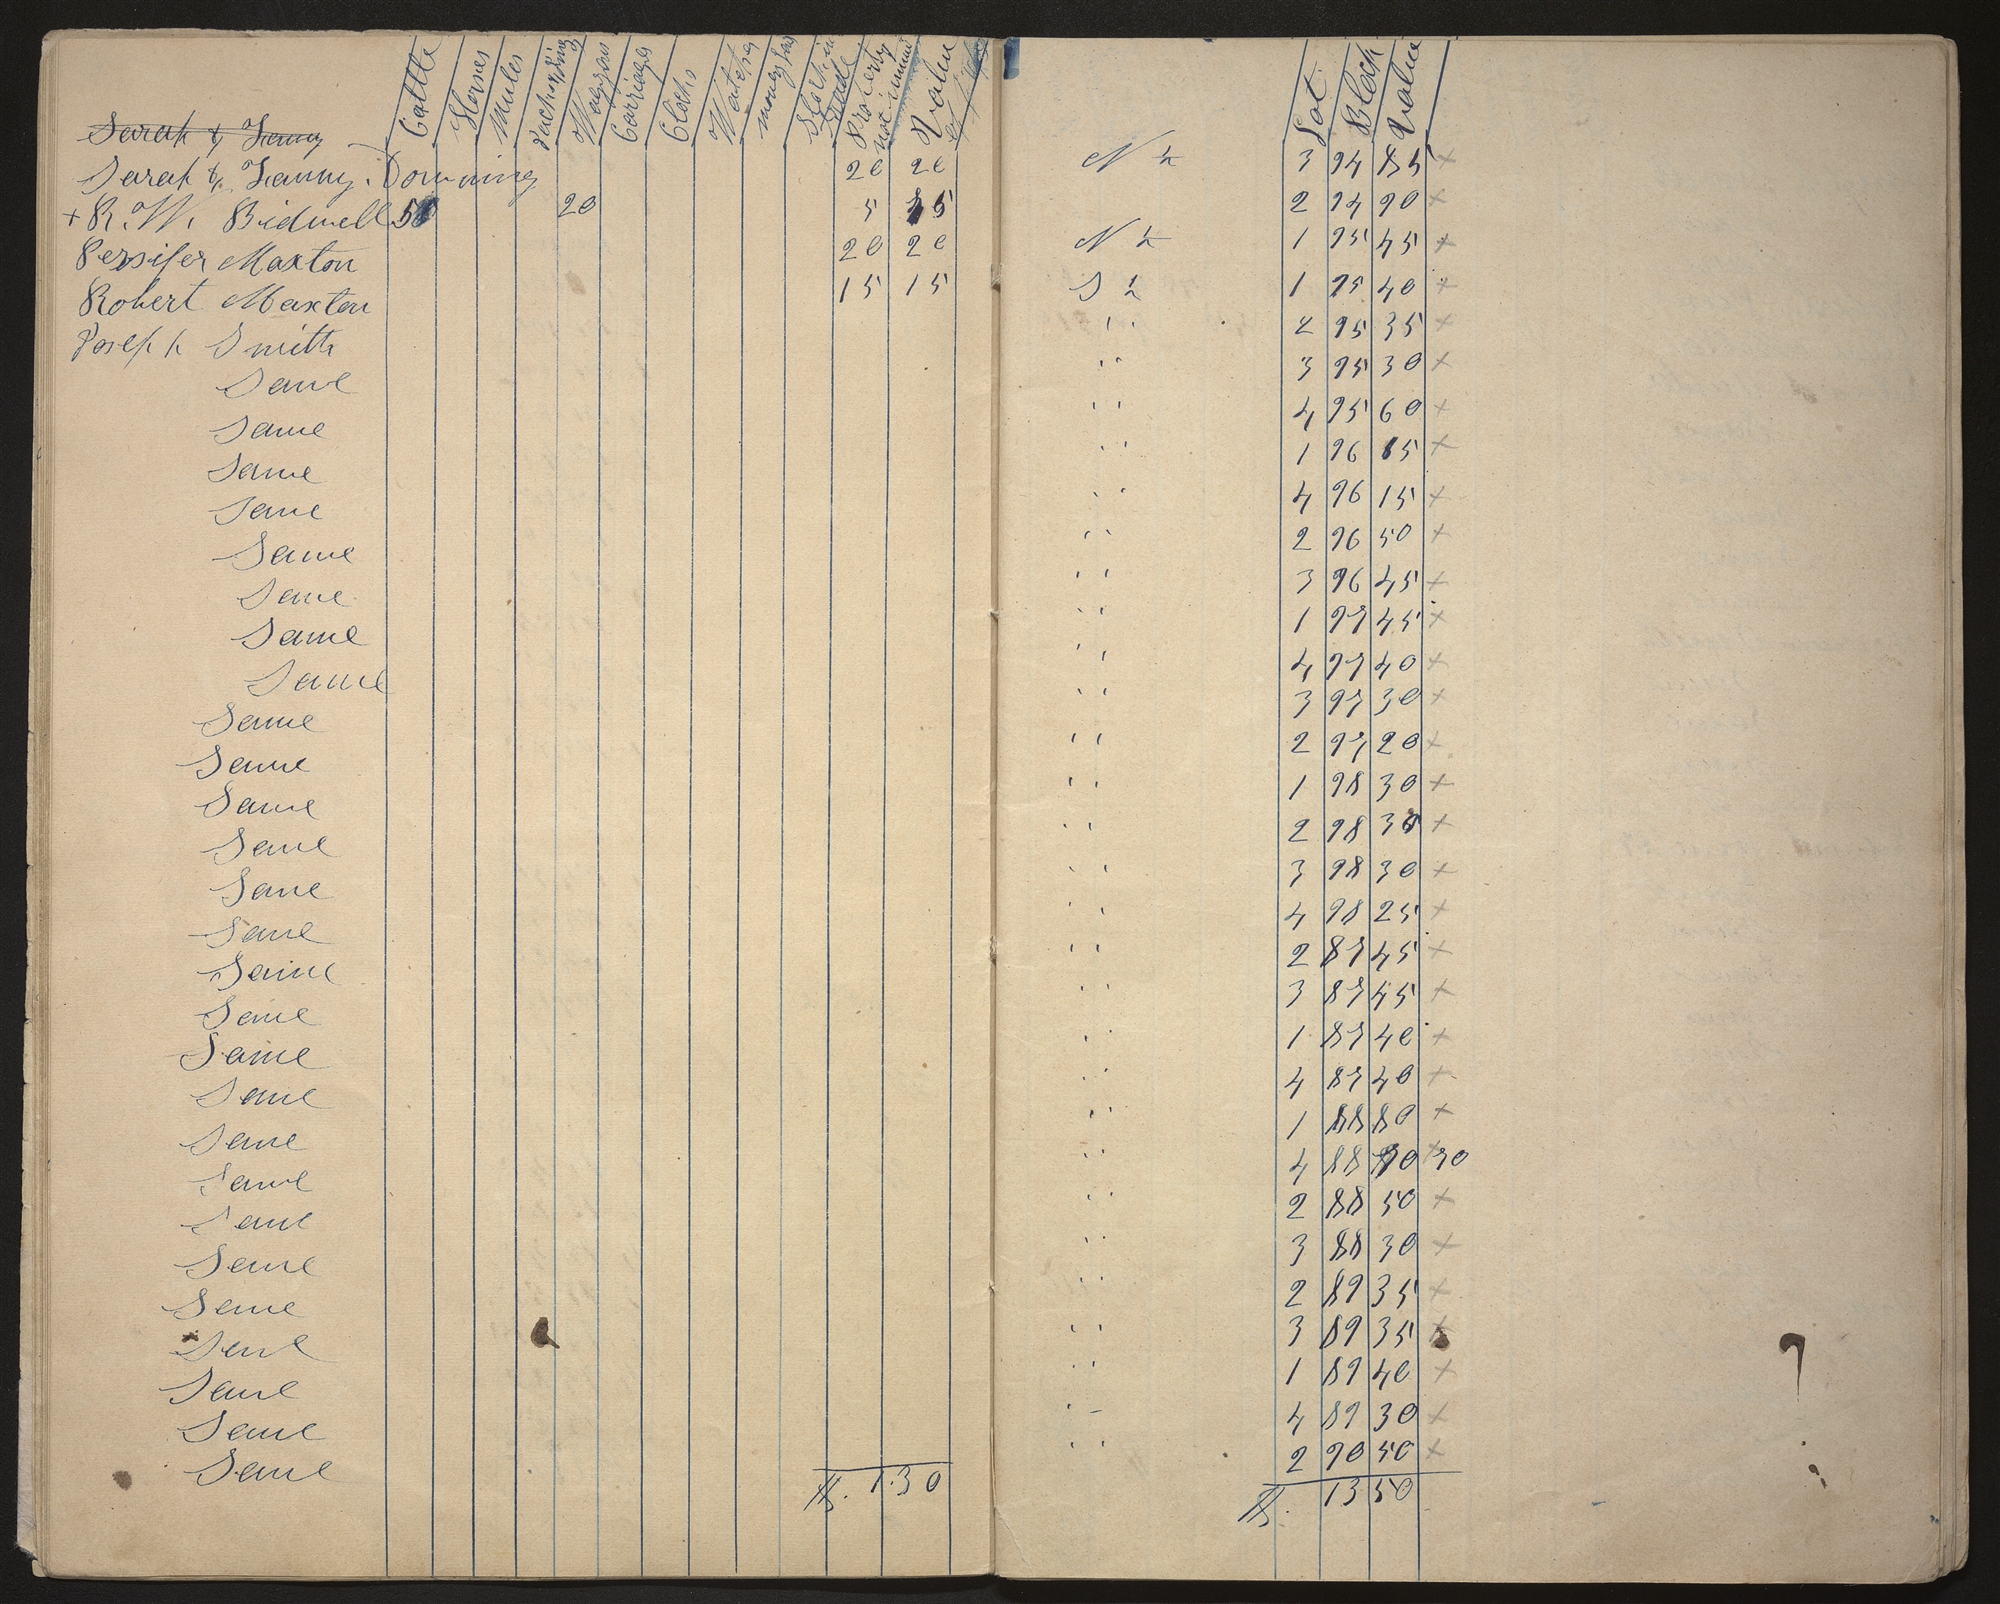 Cattle Horses Mules Wagons Carriages Clocks Watches Property not Value Lot Block Value
Sarah & Fanny
Sarah & Fanny Downing 20 20 N ½ 3 94 85 x
+ R. W. Bidwell 50 20 5 45 2 94 90 x
Persifer Maxton 20 20 N ½ 1 95 45 x
Robert Maxton 15 15 S ½ 1 95 40 x
Joseph Smith " 2 95 35 x
Same " 3 95 30 x
Same " 4 95 60 x
Same " 1 96 85 x
Same " 4 96 15 x
Same " 2 96 50 x
Same " 3 96 45 x
Same " 1 97 45 x
Same " 4 97 40 x
Same " 3 97 30 x
Same " 2 97 20 x
Same " 1 98 30 x
Same " 2 98 35 x
Same " 3 98 30 x
Same " 4 98 25 x
Same " 2 87 45 x
Same " 3 87 45 x
Same " 1 87 40 x
Same " 4 87 40 x
Same " 1 88 80 x
Same " 4 88 30 x 30
Same " 2 88 50 x
Same " 3 88 30 x
Same " 2 89 35 x
Same " 3 89 35 x
Same " 1 89 40 x
Same " 4 89 30 x
Same " 2 90 50 x
$. 130 $. 1350